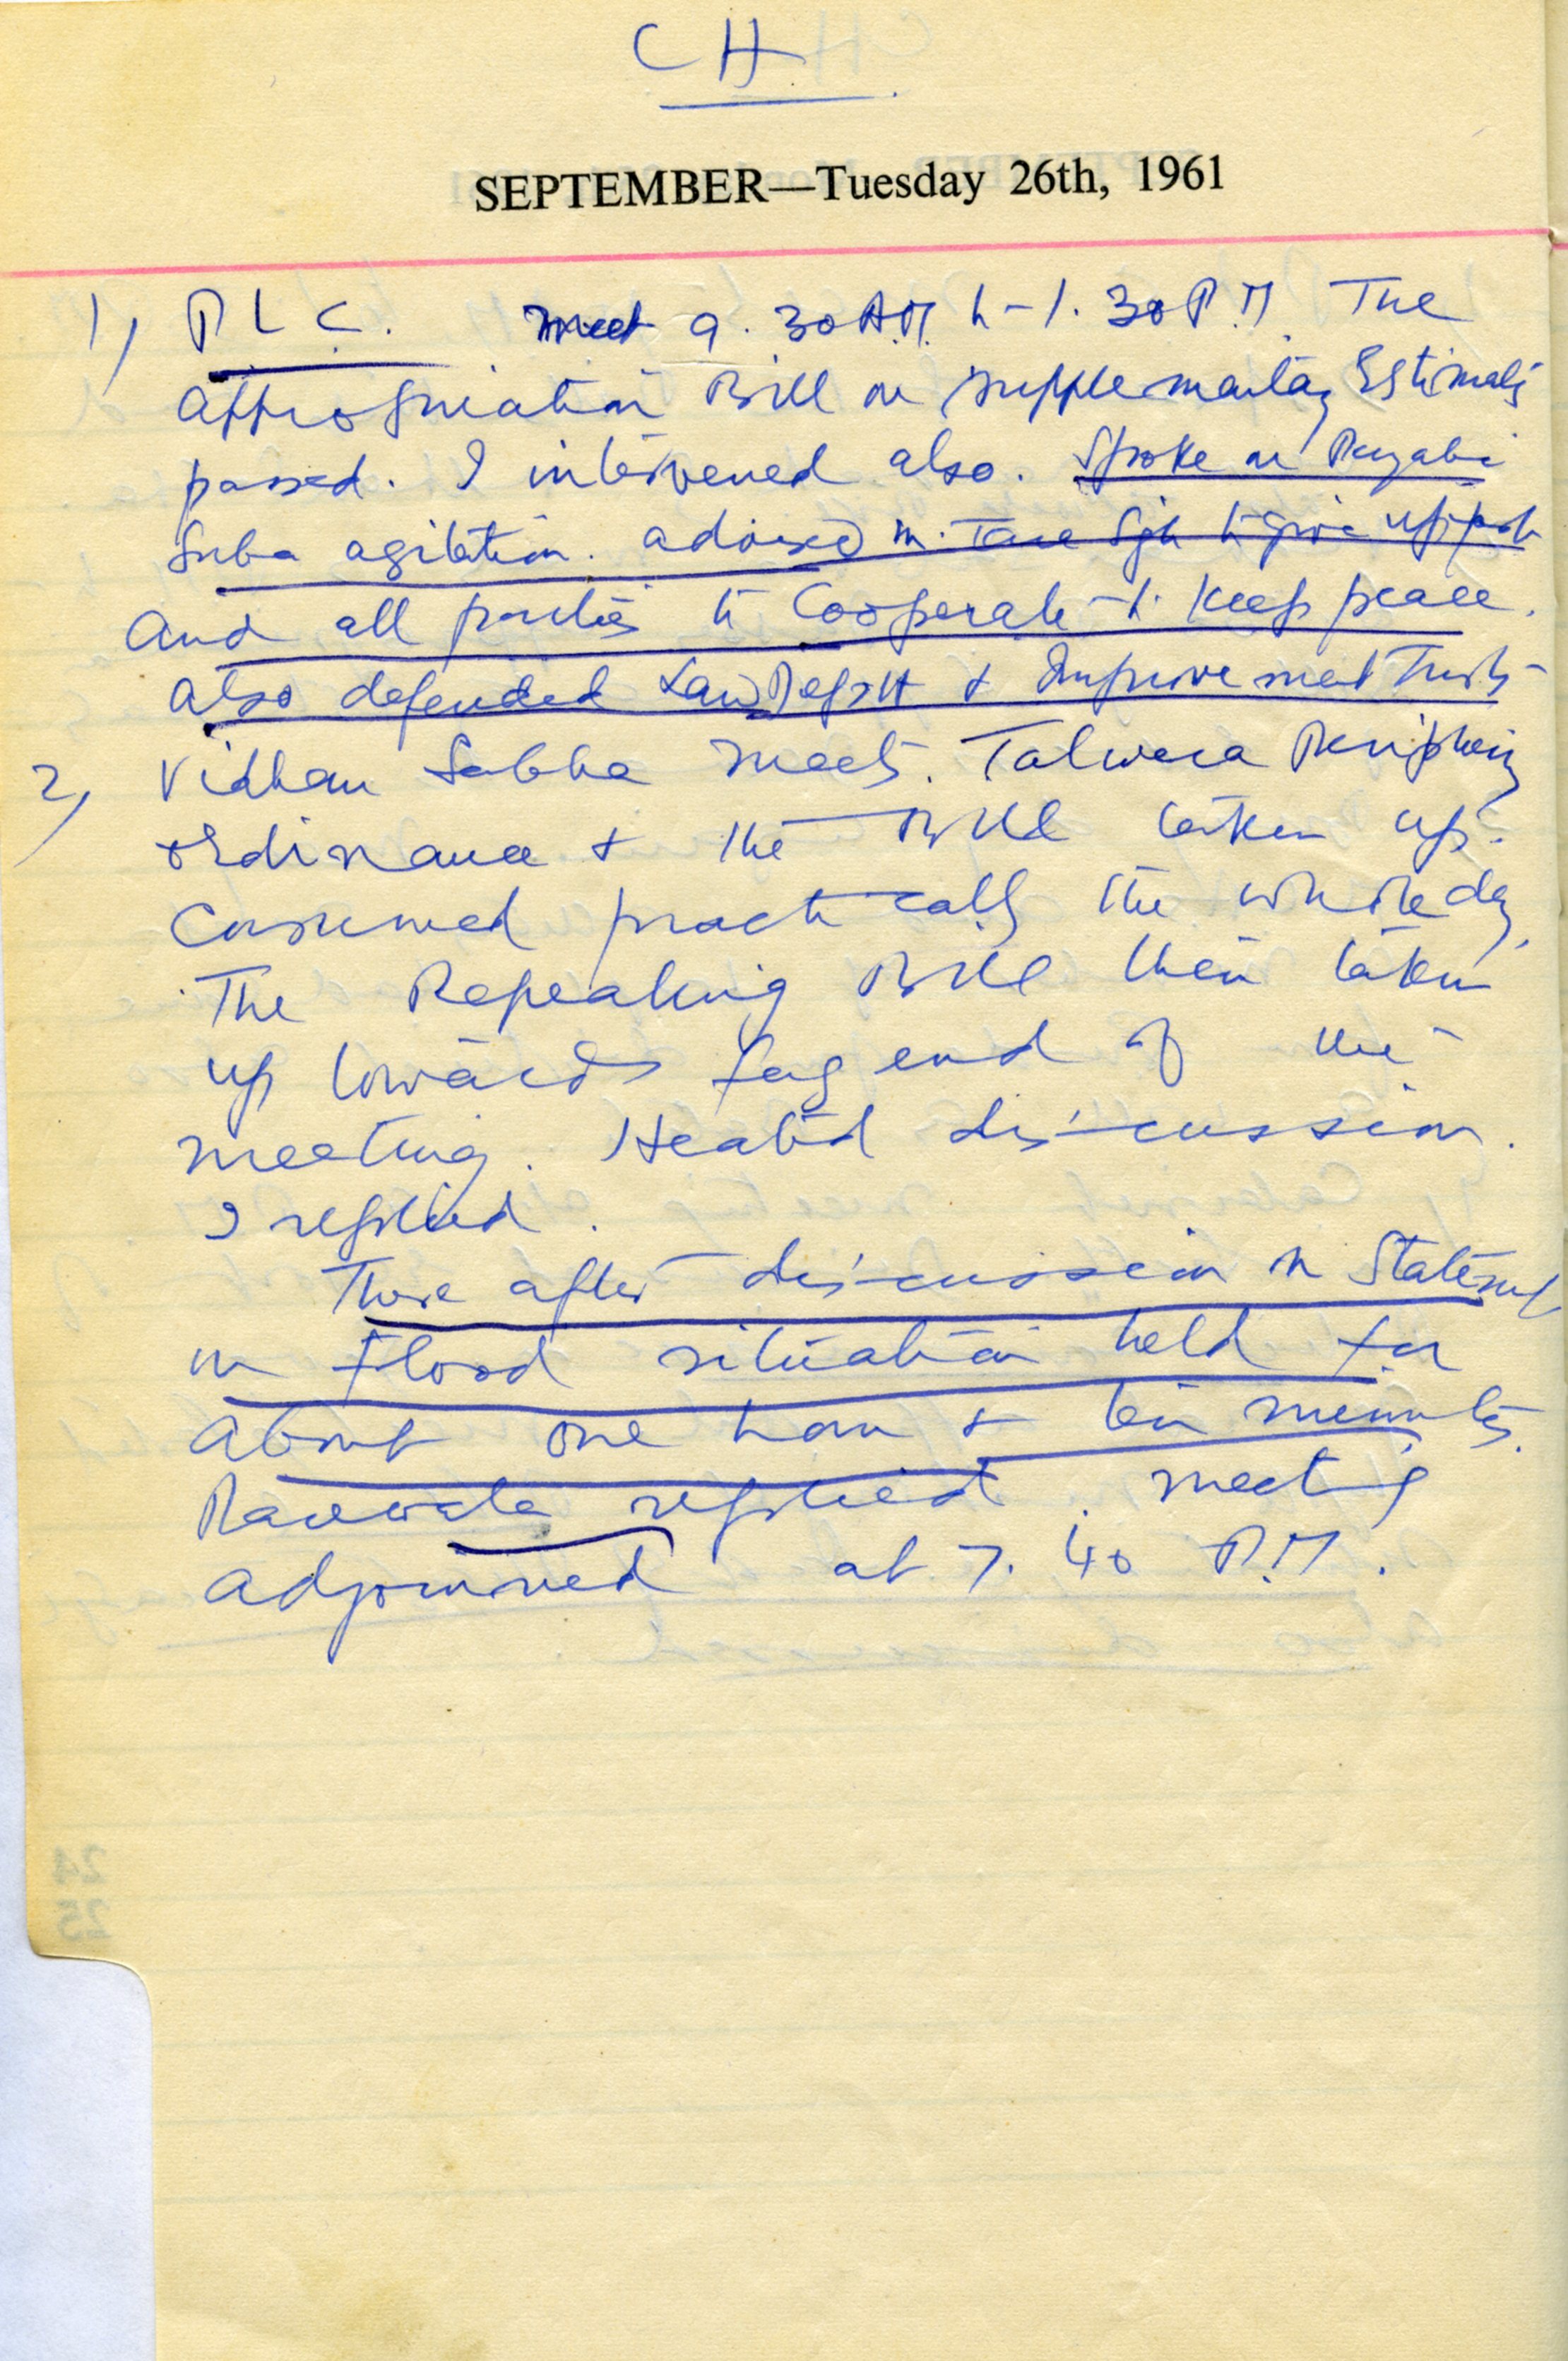 CH
SEPTEMBER—Tuesday 26th, 1961
1) P L C. meet 9.30 A.M. to 1.30 P.M. The
Appropriation Bill on Supplementary Estimates
passed. I intervened also. Spoke on Punjabi
Suba agitation. advised M. Tara Sgh to give up fast
And all parties to Cooperate to keep peace.
Also defended Law Deptt & Improvement Trusts
2) Vidhan Sabha meets. Talwara Periphery
ordinance & the Bill taken up.
Consumed practically the whole day.
The Repealing Bill then taken
up towards fag end of the
meeting. Heated discussion.
I replied.
There after discussion on Statement
on Flood situation held for
about one hour & ten minutes.
Rarewala replied. meeting
adjourned at 7.40 P.M.